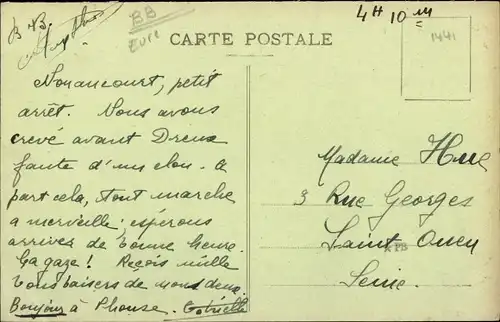 BB
Eure
4H 10m
1441
CARTE POSTALE
Nonancourt, petit
arrêt. Nous avons
crevé avant Dreux
faute d'un clou. A
part cela, tout marche
a merveille; espérons
arriver de bonne heure.
Ça gaze! Reçois mille
bons baisers de nous deux.
Bonjour à Gabrielle
Madame Hue
3 Rue Georges
Saint Ouen
Seine.